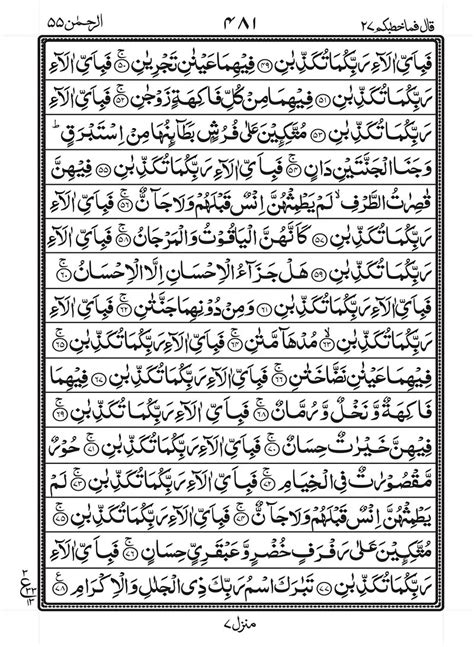 قال فماخطبکم ٢٧ ۴٨١ الرحمٰن ٥٥
فَبِاَيِّ اٰلَآءِ رَبِّكُمَا تُكَذِّبٰنِ ﴿٤٩﴾ فِيْهِمَا عَيْنٰنِ تَجْرِيٰنِ ۚ﴿٥٠﴾ فَبِاَيِّ اٰلَآءِ
رَبِّكُمَا تُكَذِّبٰنِ ﴿٥١﴾ فِيْهِمَا مِنْ كُلِّ فَاكِهَةٍ زَوْجٰنِ ۚ﴿٥٢﴾ فَبِاَيِّ اٰلَآءِ
رَبِّكُمَا تُكَذِّبٰنِ ﴿٥٣﴾ مُتَّكِـِٕيْنَ عَلٰى فُرُشٍۢ بَطَآىِٕنُهَا مِنْ اِسْتَبْرَقٍ ؕ
وَجَنَا الْجَنَّتَيْنِ دَانٍ ۚ﴿٥٤﴾ فَبِاَيِّ اٰلَآءِ رَبِّكُمَا تُكَذِّبٰنِ ﴿٥٥﴾ فِيْهِنَّ
قٰصِرٰتُ الطَّرْفِ ۙ لَمْ يَطْمِثْهُنَّ اِنْسٌ قَبْلَهُمْ وَلَا جَآنٌّ ۚ﴿٥٦﴾ فَبِاَيِّ اٰلَآءِ
رَبِّكُمَا تُكَذِّبٰنِ ۚ﴿٥٧﴾ كَاَنَّهُنَّ الْيَاقُوْتُ وَالْمَرْجَانُ ۚ﴿٥٨﴾ فَبِاَيِّ اٰلَآءِ
رَبِّكُمَا تُكَذِّبٰنِ ﴿٥٩﴾ هَلْ جَزَآءُ الْاِحْسَانِ اِلَّا الْاِحْسَانُ ۚ﴿٦٠﴾
فَبِاَيِّ اٰلَآءِ رَبِّكُمَا تُكَذِّبٰنِ ﴿٦١﴾ وَمِنْ دُوْنِهِمَا جَنَّتٰنِ ۚ﴿٦٢﴾ فَبِاَيِّ اٰلَآءِ
رَبِّكُمَا تُكَذِّبٰنِ ۙ﴿٦٣﴾ مُدْهَآمَّتٰنِ ۚ﴿٦٤﴾ فَبِاَيِّ اٰلَآءِ رَبِّكُمَا تُكَذِّبٰنِ ۚ﴿٦٥﴾
فِيْهِمَا عَيْنٰنِ نَضَّاخَتٰنِ ۚ﴿٦٦﴾ فَبِاَيِّ اٰلَآءِ رَبِّكُمَا تُكَذِّبٰنِ ﴿٦٧﴾ فِيْهِمَا
فَاكِهَةٌ وَّنَخْلٌ وَّرُمَّانٌ ۚ﴿٦٨﴾ فَبِاَيِّ اٰلَآءِ رَبِّكُمَا تُكَذِّبٰنِ ۚ﴿٦٩﴾
فِيْهِنَّ خَيْرٰتٌ حِسَانٌ ۚ﴿٧٠﴾ فَبِاَيِّ اٰلَآءِ رَبِّكُمَا تُكَذِّبٰنِ ۚ﴿٧١﴾ حُوْرٌ
مَّقْصُوْرٰتٌ فِي الْخِيَامِ ۚ﴿٧٢﴾ فَبِاَيِّ اٰلَآءِ رَبِّكُمَا تُكَذِّبٰنِ ۚ﴿٧٣﴾ لَمْ
يَطْمِثْهُنَّ اِنْسٌ قَبْلَهُمْ وَلَا جَآنٌّ ۚ﴿٧٤﴾ فَبِاَيِّ اٰلَآءِ رَبِّكُمَا تُكَذِّبٰنِ ۚ﴿٧٥﴾
مُتَّكِـِٕيْنَ عَلٰى رَفْرَفٍ خُضْرٍ وَّعَبْقَرِيٍّ حِسَانٍ ۚ﴿٧٦﴾ فَبِاَيِّ اٰلَآءِ
رَبِّكُمَا تُكَذِّبٰنِ ﴿٧٧﴾ تَبٰرَكَ اسْمُ رَبِّكَ ذِي الْجَلٰلِ وَالْاِكْرَامِ ۧ﴿٧٨﴾
منزل ٧